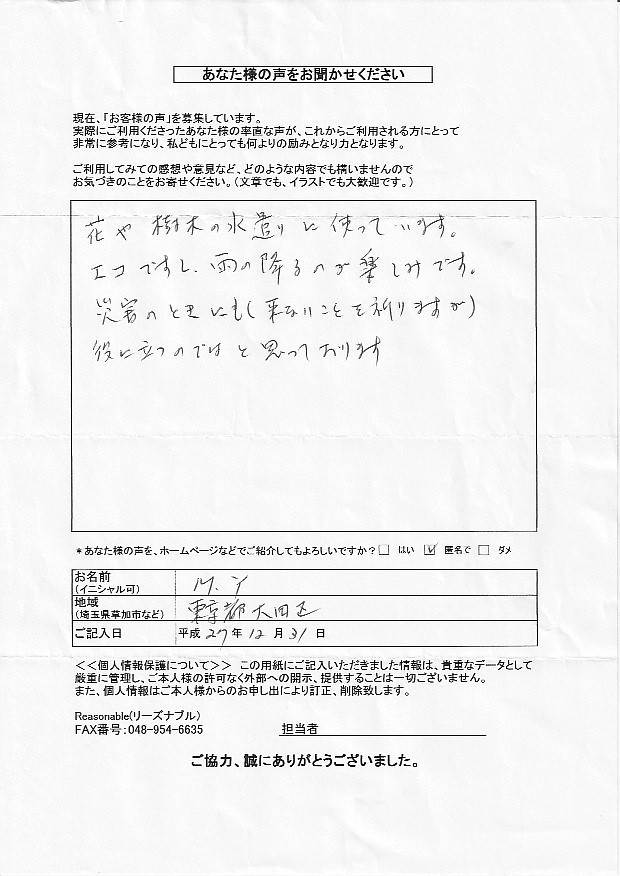 あなた様の声をお聞かせください
現在、「お客様の声」を募集しています。
実際にご利用くださったあなた様の率直な声が、これからご利用される方にとって
非常に参考になり、私どもにとっても何よりの励みとなり力となります。
ご利用してみての感想や意見など、どのような内容でも構いませんので
お気づきのことをお寄せください。（文章でも、イラストでも大歓迎です。）
花や樹木の水造りに使っています。
エコですし、雨の降るのが楽しみです。
災害のときにも(来ないことを祈りますが)
役に立つのではと思っております
＊あなた様の声を、ホームページなどでご紹介してもよろしいですか？□ はい ☑ 匿名で □ ダメ
お名前
（イニシャル可） M.Y
地域
（埼玉県草加市など） 東京都大田区
ご記入日 平成 27 年 12 月 31 日
＜＜個人情報保護について＞＞ この用紙にご記入いただきました情報は、貴重なデータとして
厳重に管理し、ご本人様の許可なく外部への開示、提供することは一切ございません。
また、個人情報はご本人様からのお申し出により訂正、削除致します。
Reasonable(リーズナブル)
FAX番号：048-954-6635 担当者
ご協力、誠にありがとうございました。